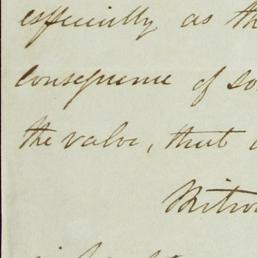 especially as th
consequence of so
the value, that